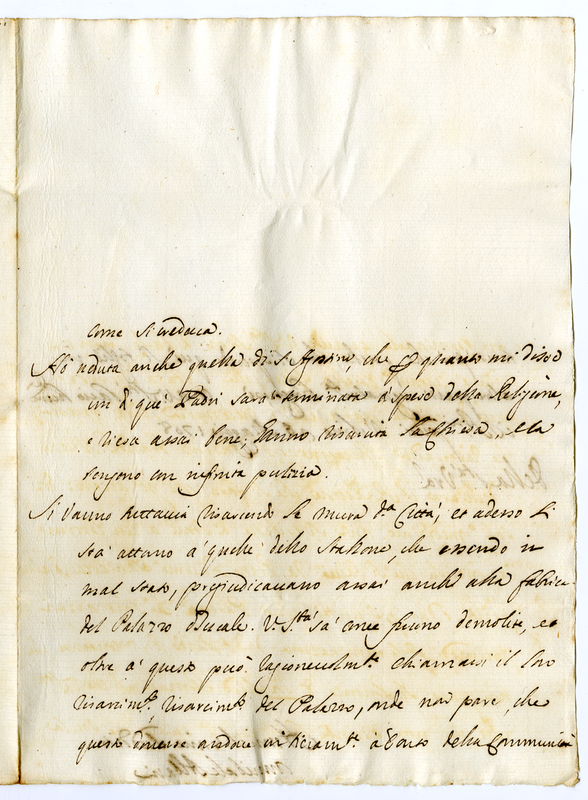 come si credeva.
Hò veduta anche quella di S. Agostino, che per quanto mi disse
un di que' Padri sarà terminata à spese della Religione,
e riesce assai bene; hanno risarcita la Chiesa, e la
tengono con infinita pulizia.
Si vanno tuttavia risarcendo le mura d.a Città, et adesso si
stà attorno à quelle dello Stallone, che essendo in
mal stato, pregiudicavano assai anche alla fabrica
del Palazzo Ducale. V. S.tà sà come furono demolite, et
oltre à questo può ragionevolm.te chiamarsi il loro
risarcim.to, risarcim.to del Palazzo, onde non pare, che
questo dovesse andare intieram.te à conto della Communità